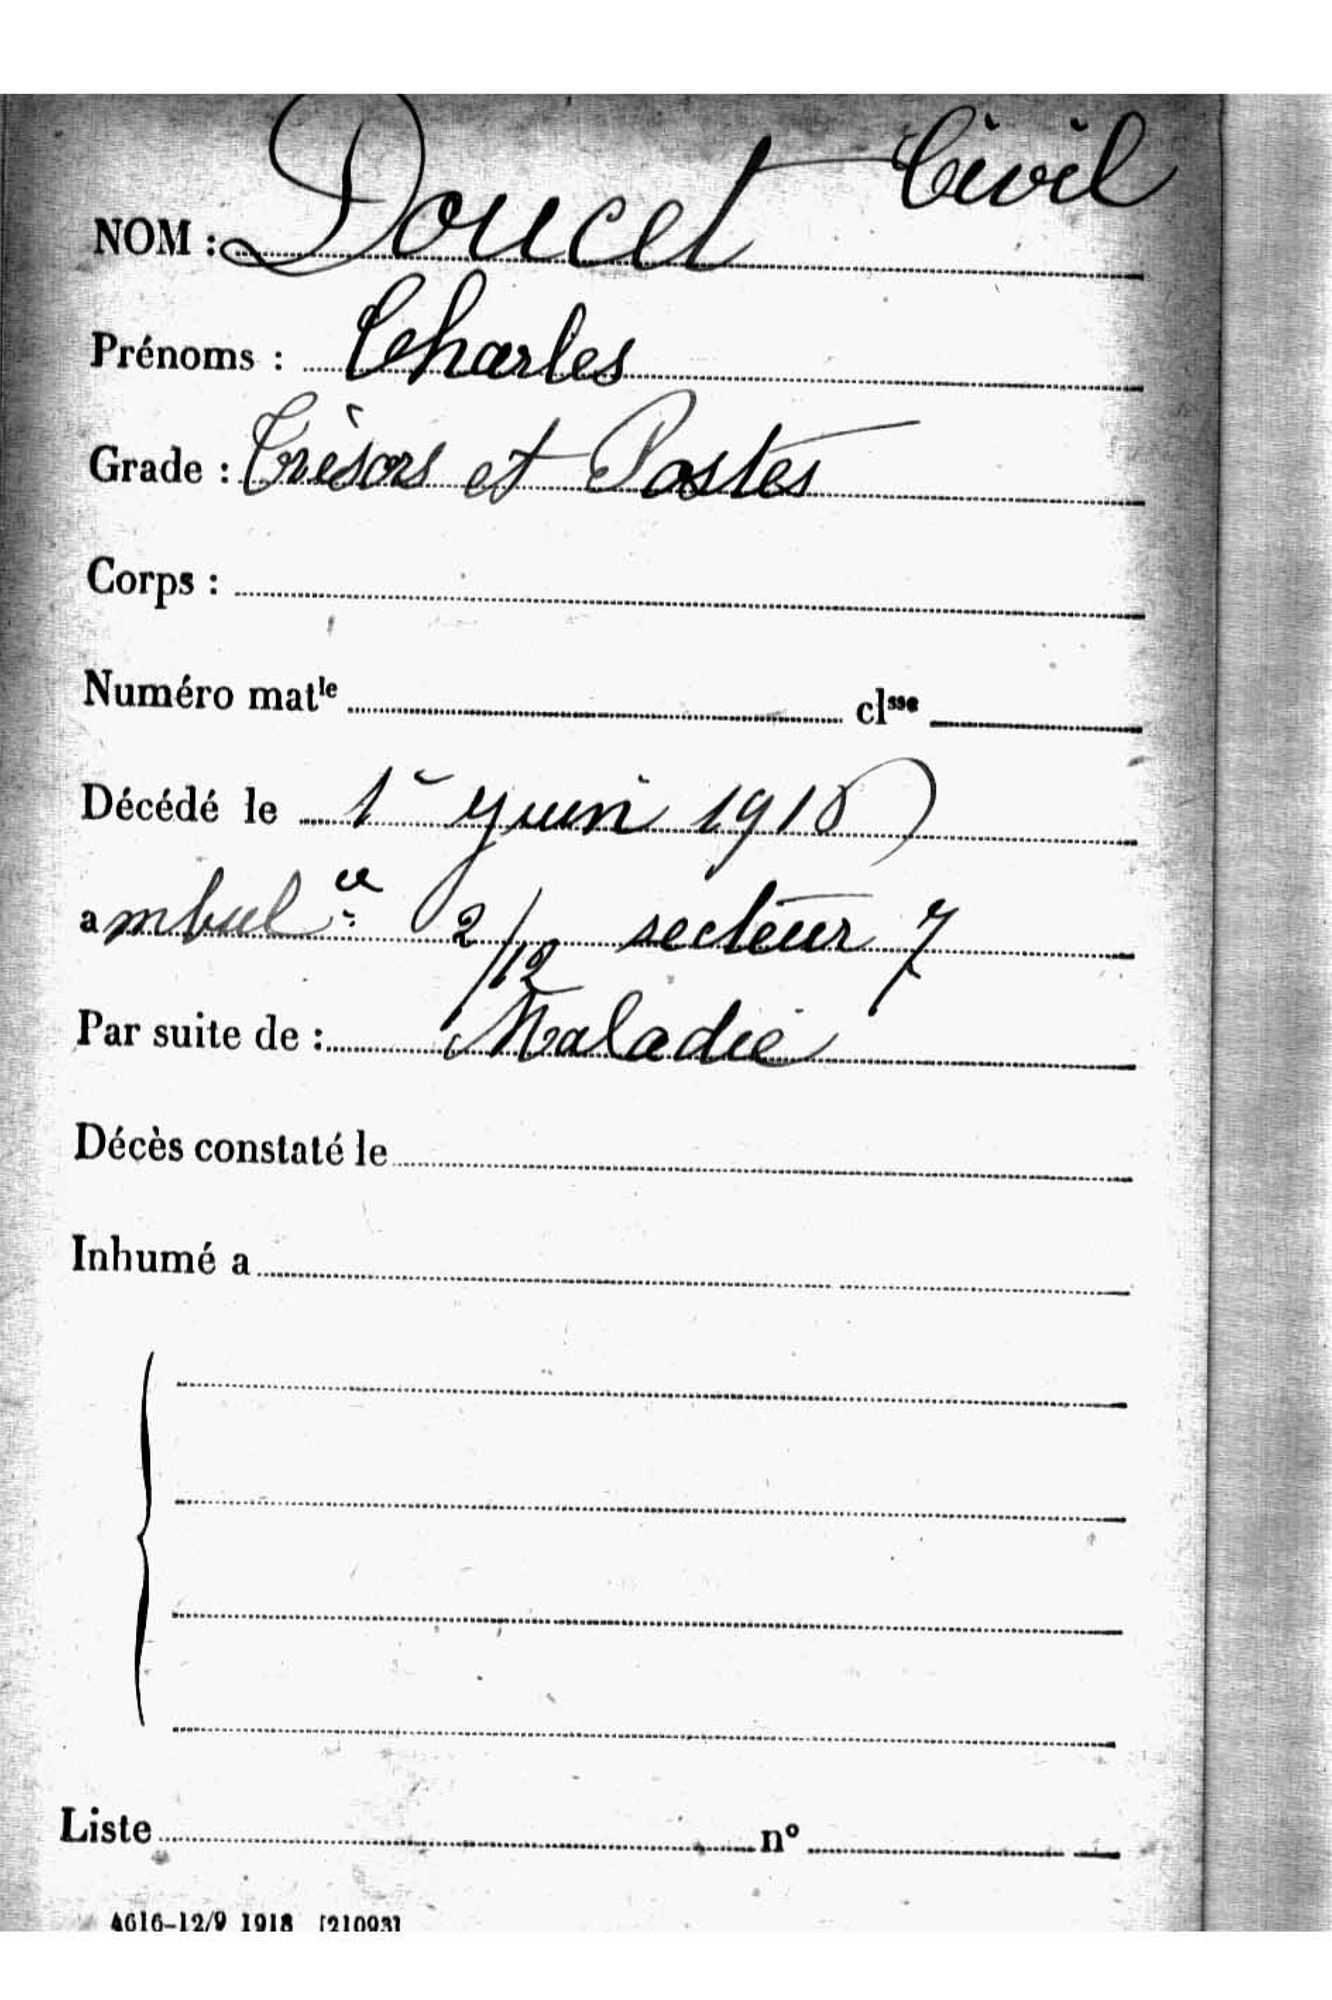 Civil
NOM : Doucet
Prénoms : Charles
Grade : Trèsors et Postes
Corps :
Numéro matle clsse
Décédé le 1er Juin 1918
ambulce 2/12 secteur 7
Par suite de : Maladie
Décès constaté le
Inhumé a
Liste n°
4616-12/9 1918 [21093]